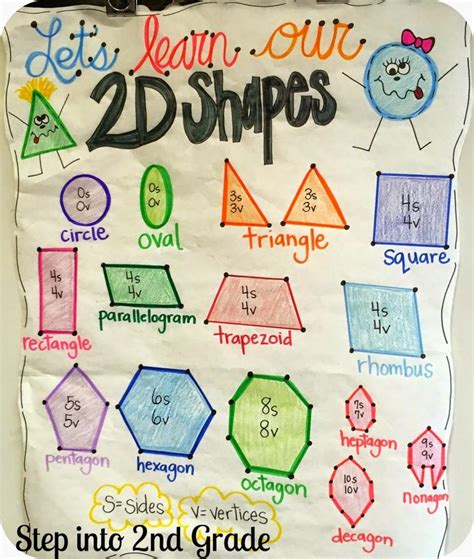 Let's learn our
2D Shapes
0s
0v
circle
0s
0v
oval
3s
3v
3s
3v
triangle
4s
4v
square
4s
4v
rectangle
4s
4v
parallelogram
4s
4v
trapezoid
4s
4v
rhombus
5s
5v
pentagon
6s
6v
hexagon
8s
8v
octagon
7s
7v
heptagon
9s
9v
nonagon
10s
10v
decagon
S=sides
V=vertices
Step into 2nd Grade